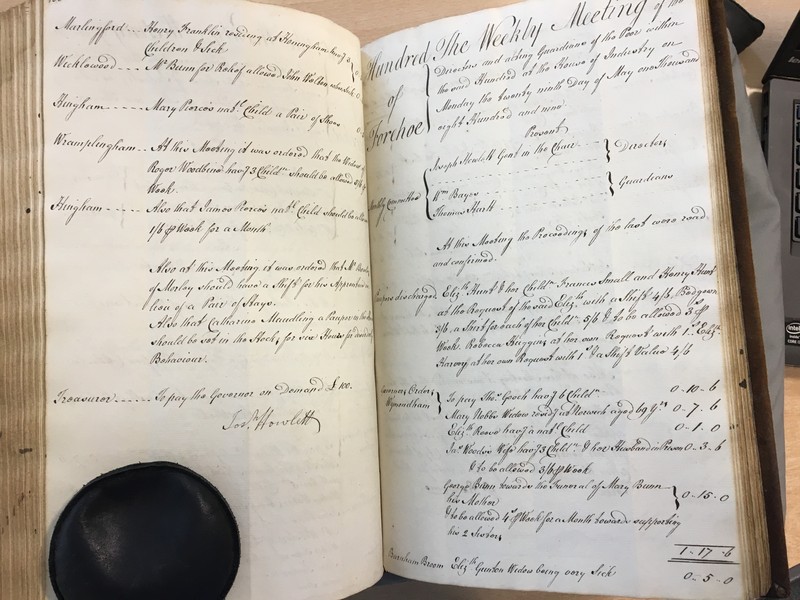 Marlingford --- Henry Franklin residing at Honingham hav.g 3
Children & Sick
Wicklewood --- Mr Bunn for Rob.t of allowed John Walton when Sick 0
Hingham ----- Mary Pierce's nat.l Child a Pair of Shoes
Wramplingham --- At this Meeting it was ordered that the Widow of
Roger Woodbine hav.g 3 Child.n should be allowed 3/6 P
Week.
Hingham --- Also that James Pierce's nat.l Child should be allowed
1/6 P Week for a Month
Also at this Meeting it was ordered that Mr
of Morley should have a Shift for his Apprentice in
lieu of a Pair of Stays.
Also that Catharine Maudling a Pauper in the House
should be set in the Stocks for six Hours for
Behaviour.
Treasurer ----- To pay the Governor on Demand £100.
Jos.h Howlett
Hundred of Forehoe } The Weekly Meeting of the
Directors and acting Guardians of the Poor within
the said Hundred at the House of Industry on
Monday the twenty ninth Day of May one Thousand
eight Hundred and nine
Present
Weekly Committee { Joseph Howlett Gent in the Chair --- } Directors
Wm Bayes --- } Guardians
Thomas Hartt
At this Meeting the Proceedings of the last were read
and confirmed.
Paupers discharged Eliz.th Hunt & her Child.n Frances Small and Henry Hunt
at the Request of the said Eliz.th with a Shift 4/6, Bedgown
3/6, a Shirt for each of her Child.n 5/6 & to be allowed 3 P
Week. Rebecca Buggins at her own Request with 1s. Eliz.th
Harvey at her own Request with 1s & a Shift Value 4/6
Governors Orders
Wymondham } To pay Tho.s Gooch hav.g 6 Child.n 0-10-6
Mary Nobbs Widow resid.g at Norwich aged 69 Y.rs 0-7-6
Eliz.th Reeve hav.g a nat.l Child 0-1-0
Jn.o Woods's Wife hav.g 3 Child.n & her Husband in Prison 0-3-6
& to be allowed 3/6 P Week
George Bunn towards the Funeral of Mary Bunn
his Mother } 0-15-0
& to be allowed 4s P Week for a Month towards supporting
his 2 Sisters
1-17-6
Barnham Broom Eliz.th Gunton Widow being very Sick 0-5-0
intel